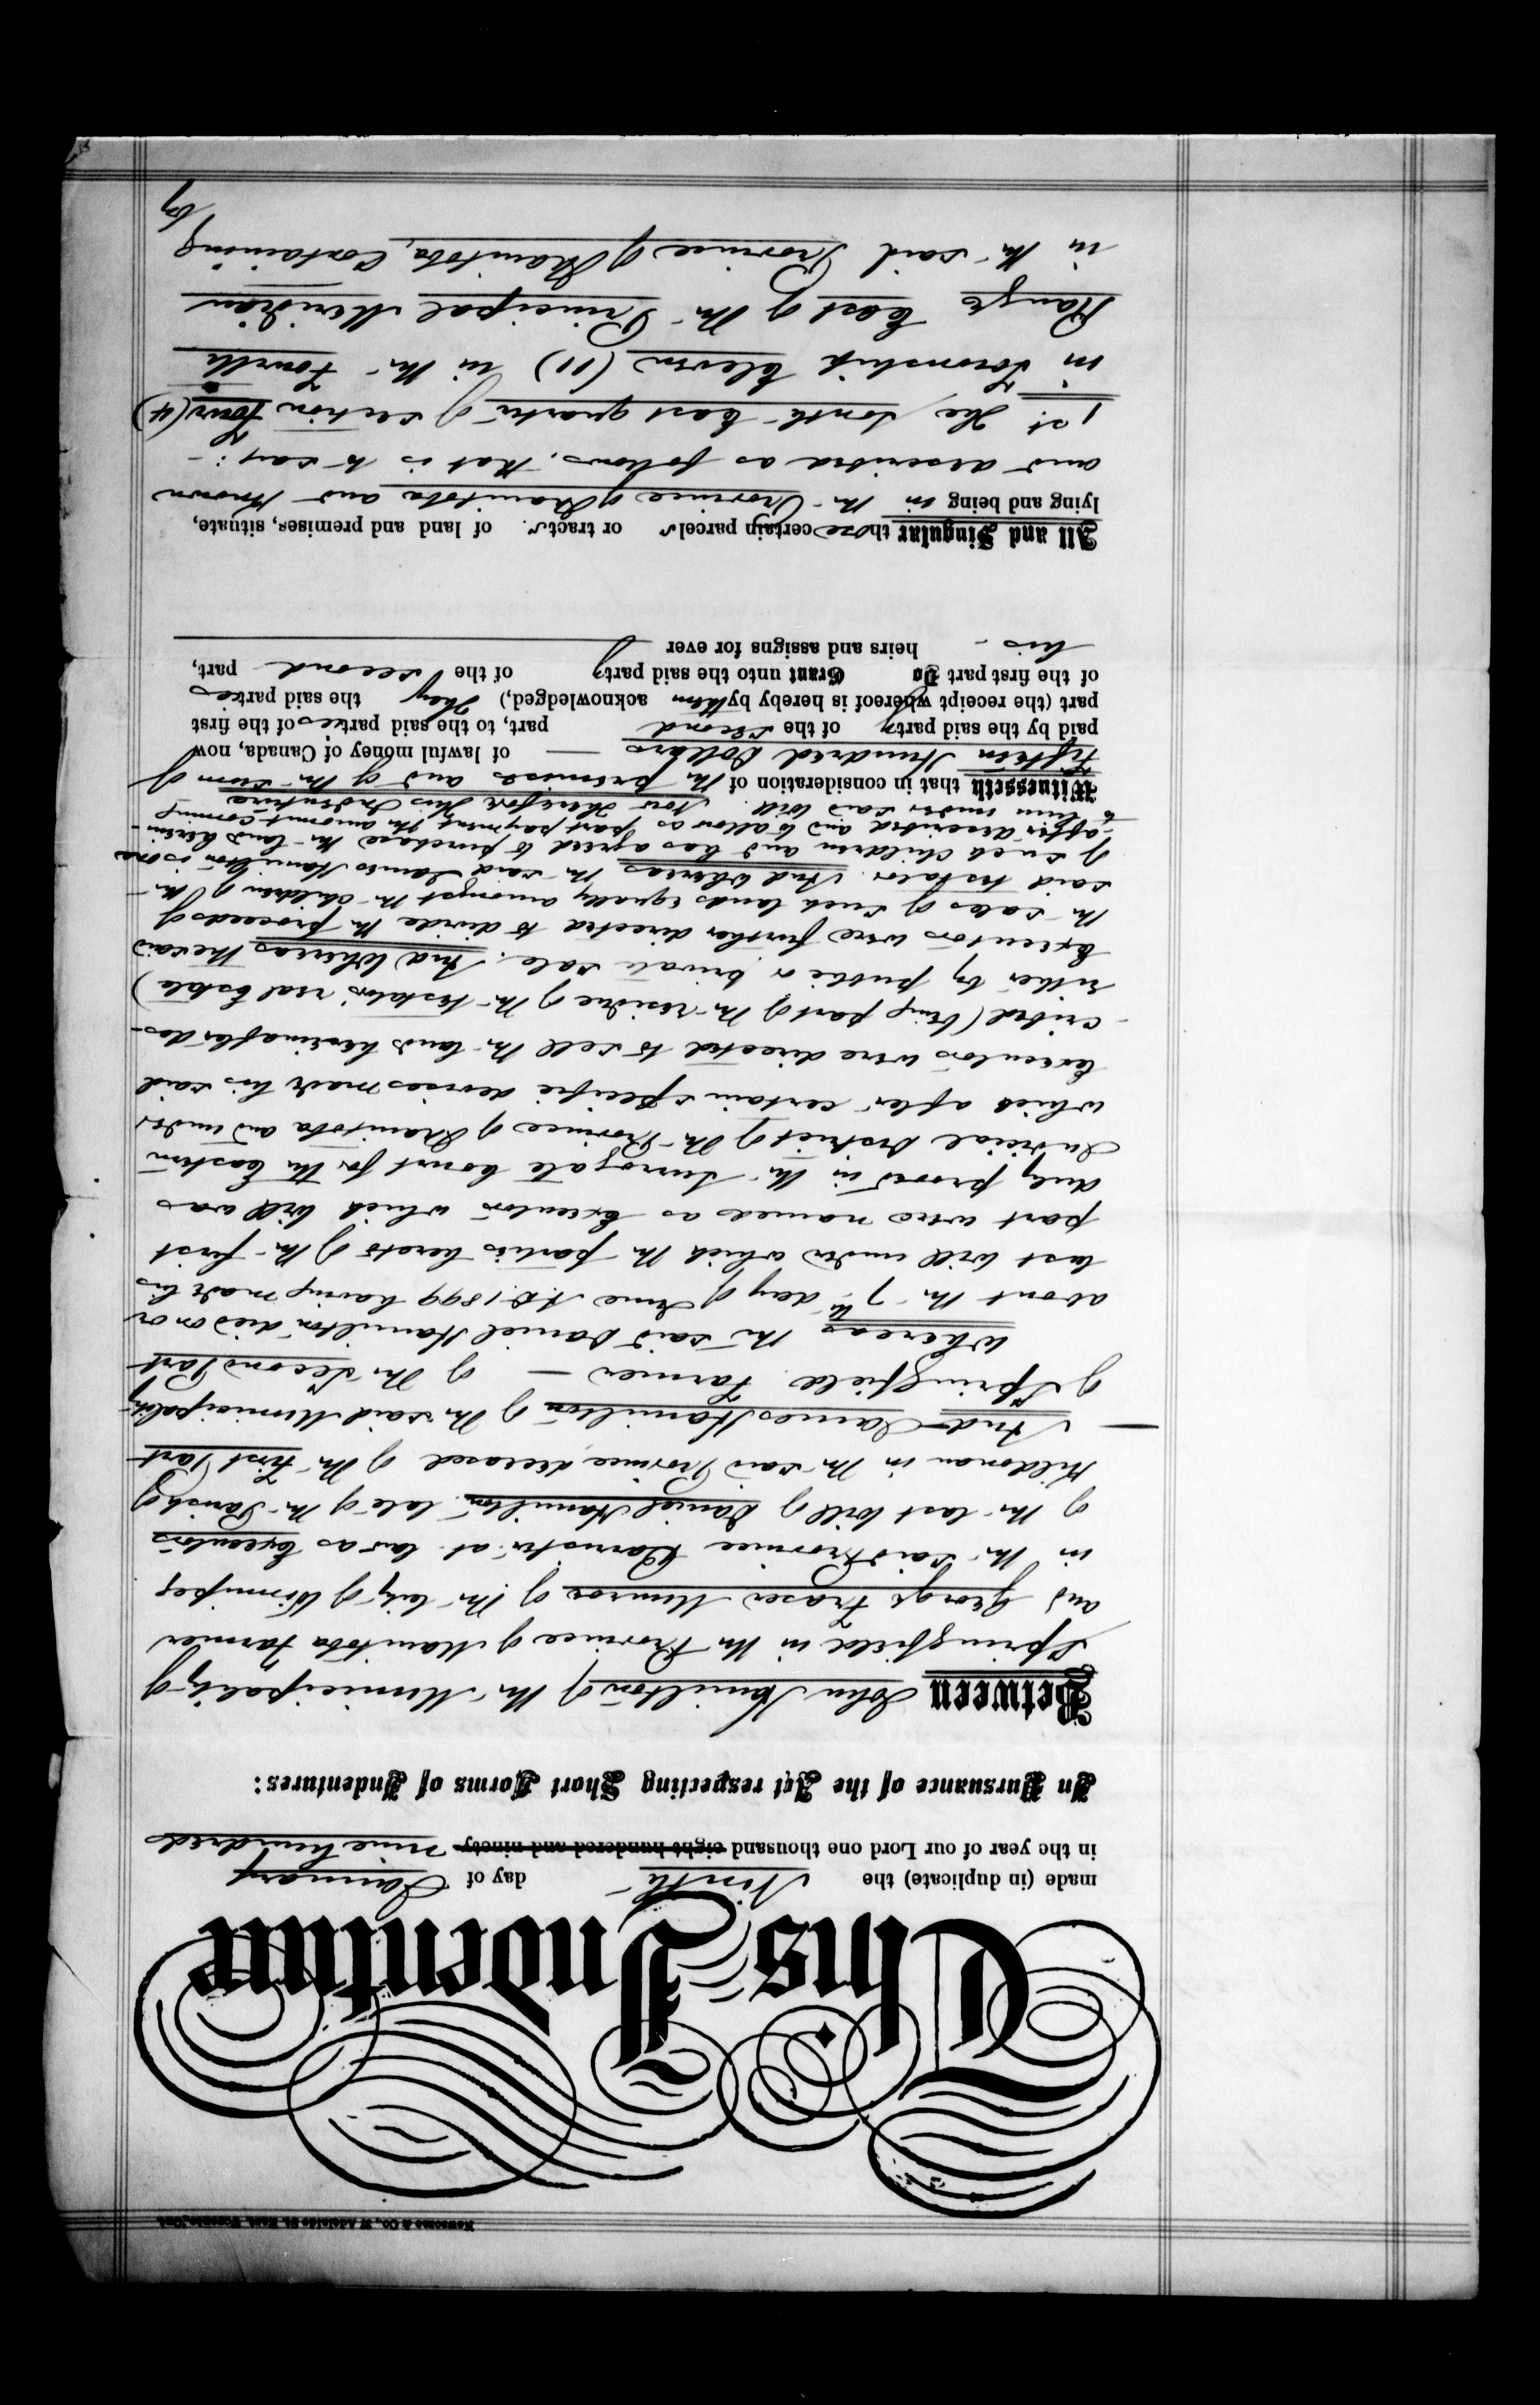 Newsome & Co., 37 Adelaide St. East, Toronto, Ont.
This Indenture
made (in duplicate) the Ninth day of January
in the year of our Lord one thousand eight hundered and ninety nine hundred
In Pursuance of the Act respecting Short Forms of Indentures:
Between John Hamilton of the Municipality of
Springfield in the Province of Manitoba Farmer
and George Fraser Munroe of the City of Winnipeg
in the said Province Barrister at law as Executors
of the last Will of Daniel Hamilton late of the Parish of
Kildonan in the said Province deceased of the First Part
And James Hamilton of the said Municipality
of Springfield Farmer — of the Second Part
Whereas the said Daniel Hamilton died on or
about the 7th day of June A.D. 1899 having made his
last will under which the parties hereto of the first
part were named as Executors which Will was
duly proved in the Surrogate Court for the Eastern
Judicial District of the Province of Manitoba and under
which after certain specific devises made his said
Executors were directed to sell the lands hereinafter des-
-cribed (being part of the residue of the testators real Estate)
either by public or private sale. And Whereas the said
Executors were further directed to divide the proceeds of
the sales of such lands equally amongst the children of the
said testator. And Whereas the said James Hamilton is one
of such children and has agreed to purchase the lands herein-
-after described and to allow as part payment the amount coming
to him under said Will. Now Therefore this Indenture
Witnesseth that in consideration of the premises and of the sum of
Fifteen Hundred Dollars — of lawful money of Canada, now
paid by the said party of the second part, to the said parties of the first
part (the receipt whereof is hereby by them acknowledged,) They the said parties
of the first part Do Grant unto the said party of the second part,
his heirs and assigns for ever
All and Singular those certain parcels or tracts of land and premises, situate,
lying and being in the Province of Manitoba and known
and described as follows, that is to say:-
1st. The South East quarter of Section Four (4)
in Township Eleven (11) in the Fourth
Range East of the Principal Meridian
in the said Province of Manitoba, Containing
by